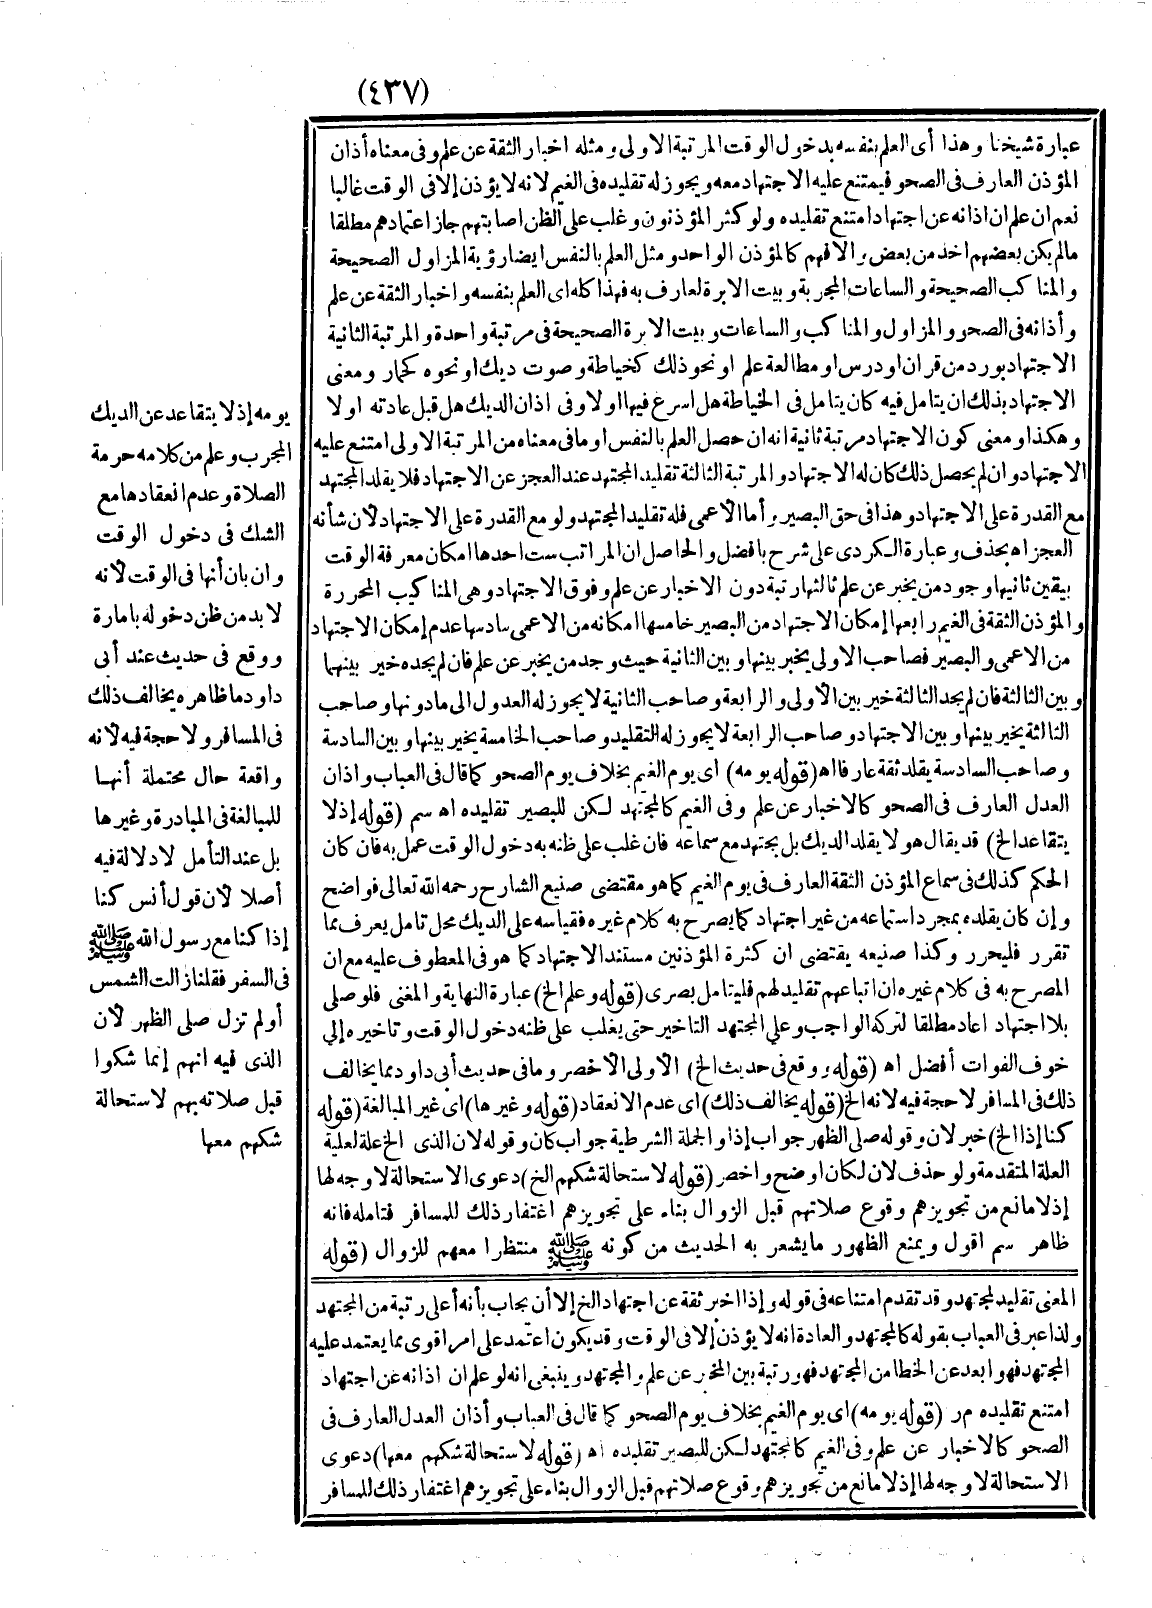 (٤٣٧)
عبارة شيخنا وهذا أى العلم بنفسه بدخول الوقت المرتبة الاولى ومثله اخبار الثقة عن علم وفى معناه أذان
المؤذن العارف فى الصحو فيمتنع عليه الاجتهاد معه ويجوز له تقليده فى الغيم لانه لا يؤذن إلا فى الوقت غالبا
نعم ان علم ان اذانه عن اجتهاد امتنع تقليده ولو كثر المؤذنون وغلب على الظن اصابتهم جاز اعتمادهم مطلقا
مالم يكن بعضهم اخذ من بعض والا فهم كالمؤذن الواحد ومثل العلم بالنفس ايضا رؤية المزاول الصحيحة
والمناكب الصحيحة والساعات المجربة وبيت الابرة لعارف به فهذا كله اى العلم بنفسه واخبار الثقة عن علم
وأذانه فى الصحو والمزاول والمناكب والساعات وبيت الابرة الصحيحة فى مرتبة واحدة والمرتبة الثانية
الاجتهاد بورد من قران او درس او مطالعة علم او نحو ذلك كخياطة وصوت ديك او نحوه كحمار ومعنى
الاجتهاد بذلك ان يتامل فيه كان يتامل فى الخياطة هل اسرع فيها اولا وفى اذان الديك هل قبل عادته اولا
وهكذا ومعنى كون الاجتهاد مرتبة ثانية انه ان حصل العلم بالنفس او ما فى معناه من المرتبة الاولى امتنع عليه
الاجتهاد وان لم يحصل ذلك كان له الاجتهاد والمرتبة الثالثة تقليد المجتهد عند العجز عن الاجتهاد فلا يقلد المجتهد
مع القدرة على الاجتهاد وهذا فى حق البصير وأما الأعمى فله تقليد المجتهد ولو مع القدرة على الاجتهاد لان شأنه
العجز اه بحذف وعبارة الكردى على شرح بافضل والحاصل ان المراتب ست احدها امكان معرفة الوقت
بيقين ثانيها وجود من يخبر عن علم ثالثها رتبة دون الاخبار عن علم وفوق الاجتهاد وهى المناكيب المحررة
والمؤذن الثقة فى الغيم رابعها إمكان الاجتهاد من البصير خامسها امكانه من الاعمى سادسها عدم إمكان الاجتهاد
من الاعمى والبصير فصاحب الاولى يخير بينها وبين الثانية حيث وجد من يخبر عن علم فان لم يجده خير بينهما
وبين الثالثة فان لم يجد الثالثة خير بين الأولى والرابعة وصاحب الثانية لا يجوز له العدول الى ما دونها وصاحب
الثالثة يخير بينها وبين الاجتهاد وصاحب الرابعة لا يجوز له التقليد وصاحب الخامسة يخير بينها وبين السادسة
وصاحب السادسة يقلد ثقة عارفا اه (قوله يومه) اى يوم الغيم بخلاف يوم الصحو كما قال فى العباب واذان
العدل العارف فى الصحو كالاخبار عن علم وفى الغيم كالمجتهد لكن للبصير تقليده اه سم (قوله إذ لا
يتقاعد الخ) قد يقال هو لا يقلد الديك بل يجتهد مع سماعه فان غلب على ظنه به دخول الوقت عمل به فان كان
الحكم كذلك فى سماع المؤذن الثقة العارف فى يوم الغيم كما هو مقتضى صنيع الشارح رحمه الله تعالى فواضح
وإن كان يقلده بمجرد استماعه من غير اجتهاد كما يصرح به كلام غيره فقياسه على الديك محل تامل يعرف بما
تقرر فليحرر وكذا صنيعه يقتضى ان كثرة المؤذنين مستند الاجتهاد كما هو فى المعطوف عليه مع ان
المصرح به فى كلام غيره ان اتباعهم تقليد لهم فليتامل بصرى (قوله وعلم الخ) عبارة النهاية والمغنى فلو صلى
بلا اجتهاد اعاد مطلقا لتركه الواجب وعلى المجتهد التاخير حتى يغلب على ظنه دخول الوقت وتاخيره إلى
خوف الفوات أفضل اه (قوله ووقع فى حديث الخ) الأولى الأخصر وما فى حديث أبى داود مما يخالف
ذلك فى المسافر لا حجة فيه لانه الخ (قوله يخالف ذلك) اى عدم الانعقاد (قوله وغيرها) اى غير المبالغة (قوله
كنا إذا الخ) خبر لان وقوله صلى الظهر جواب إذا والجملة الشرطية جواب كان وقوله لان الذى الخ علة لعلية
العلة المتقدمة ولو حذف لان لكان اوضح واخصر (قوله لاستحالة شكهم الخ) دعوى الاستحالة لا وجه لها
إذ لا مانع من تجويزهم وقوع صلاتهم قبل الزوال بناء على تجويزهم اغتفار ذلك للمسافر فتامله فانه
ظاهر سم اقول ويمنع الظهور ما يشعر به الحديث من كونه ﷺ منتظرا معهم للزوال (قوله
المغنى تقليد لمجتهد وقد تقدم امتناعه فى قوله وإذا اخبر ثقة عن اجتهاد الخ إلا أن يجاب بأنه أعلى رتبة من المجتهد
ولذا عبر فى العباب بقوله كالمجتهد والعادة انه لا يؤذن إلا فى الوقت وقد يكون اعتمد على امر اقوى مما يعتمد عليه
المجتهد فهو ابعد عن الخطا من المجتهد فهو رتبة بين المخبر عن علم والمجتهد وينبغى انه لو علم ان اذانه عن اجتهاد
امتنع تقليده م ر (قوله يومه) اى يوم الغيم بخلاف يوم الصحو كما قال فى العباب وأذان العدل العارف فى
الصحو كالاخبار عن علم وفى الغيم كالمجتهد لكن للبصير تقليده اه (قوله لاستحالة شكهم معها) دعوى
الاستحالة لا وجه لها إذ لا مانع من تجويزهم وقوع صلاتهم قبل الزوال بناء على تجويزهم اغتفار ذلك للمسافر
يومه إذ لا يتقاعد عن الديك
المجرب وعلم من كلامه حرمة
الصلاة وعدم انعقادها مع
الشك فى دخول الوقت
وان بان أنها فى الوقت لأنه
لا بد من ظن دخوله بامارة
ووقع فى حديث عند أبى
داود ما ظاهره يخالف ذلك
فى المسافر ولا حجة فيه لأنه
واقعة حال محتملة أنهـا
للمبالغة فى المبادرة وغيرها
بل عند التأمل لا دلالة فيه
أصلا لأن قول أنس كنا
إذا كنا مع رسول الله ﷺ
فى السفر فقلنا زالت الشمس
أو لم تزل صلى الظهر لأن
الذى فيه انهم إنما شكوا
قبل صلاته بهم لاستحالة
شكهم معها